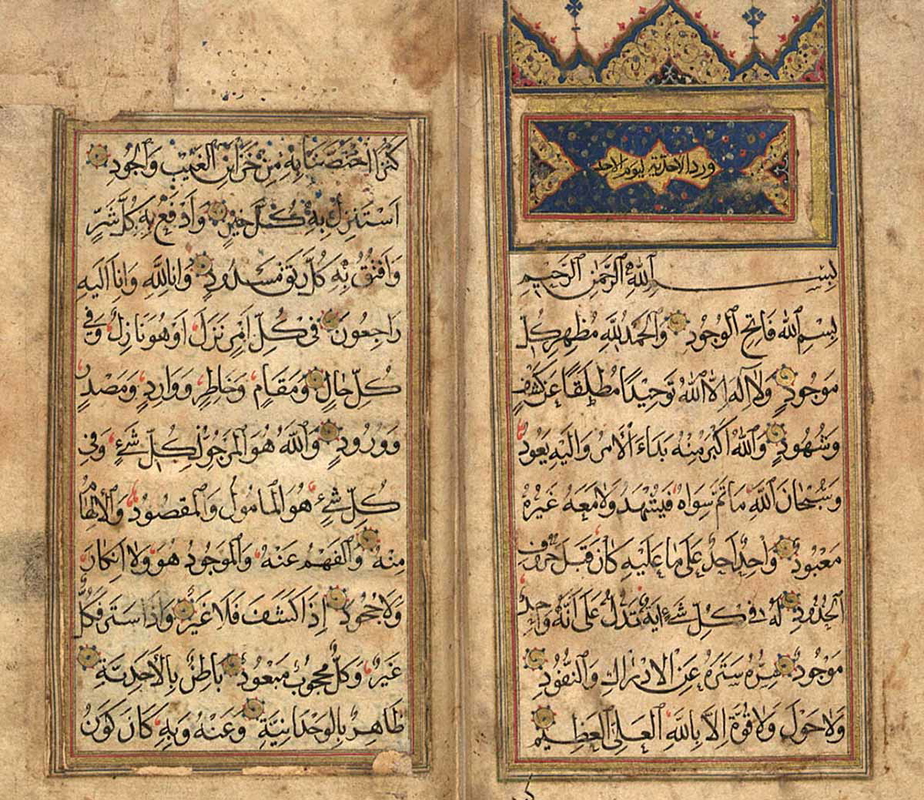 ورد الاحدية ليوم الاحد
بسم الله الرحمن الرحيم
بسم الله فاتح الوجود والحمد لله مظهر كل
موجود ولا اله الا الله توحيدا مطلقا عن كشف
وشهود والله اكبر منه بداء الامر واليه يعود
وسبحان الله ما ثم سواه فيشهد ولا معه غيره
معبود واحد احد على ما عليه كان قبل حروف
الحدود له في كل شئ اية تدل على انه واحد
موجود سره ستره عن الادراك والنفود
ولا حول ولا قوة الا بالله العلي العظيم
كنز اختصنا به من خزائن الغيب والجود
استنزل به كل خير وادفع به كل شر
وافتق به كل رتق مسدود وانا لله وانا اليه
راجعون في كل امر نزل او هو نازل وفي
كل حال ومقام وخاطر ووارد ومصدر
وورود والله هو المرجو لكل شئ وفي
كل شئ هو المامول والمقصود والالهام
منه والفهم عنه والموجود هو ولا انكار
ولا جحود اذا كشف فلا غير واذا ستر فكل
غير وكل محجوب مبعود باطن بالاحدية
ظاهر بالوحدانية وعنه وبه كان كون